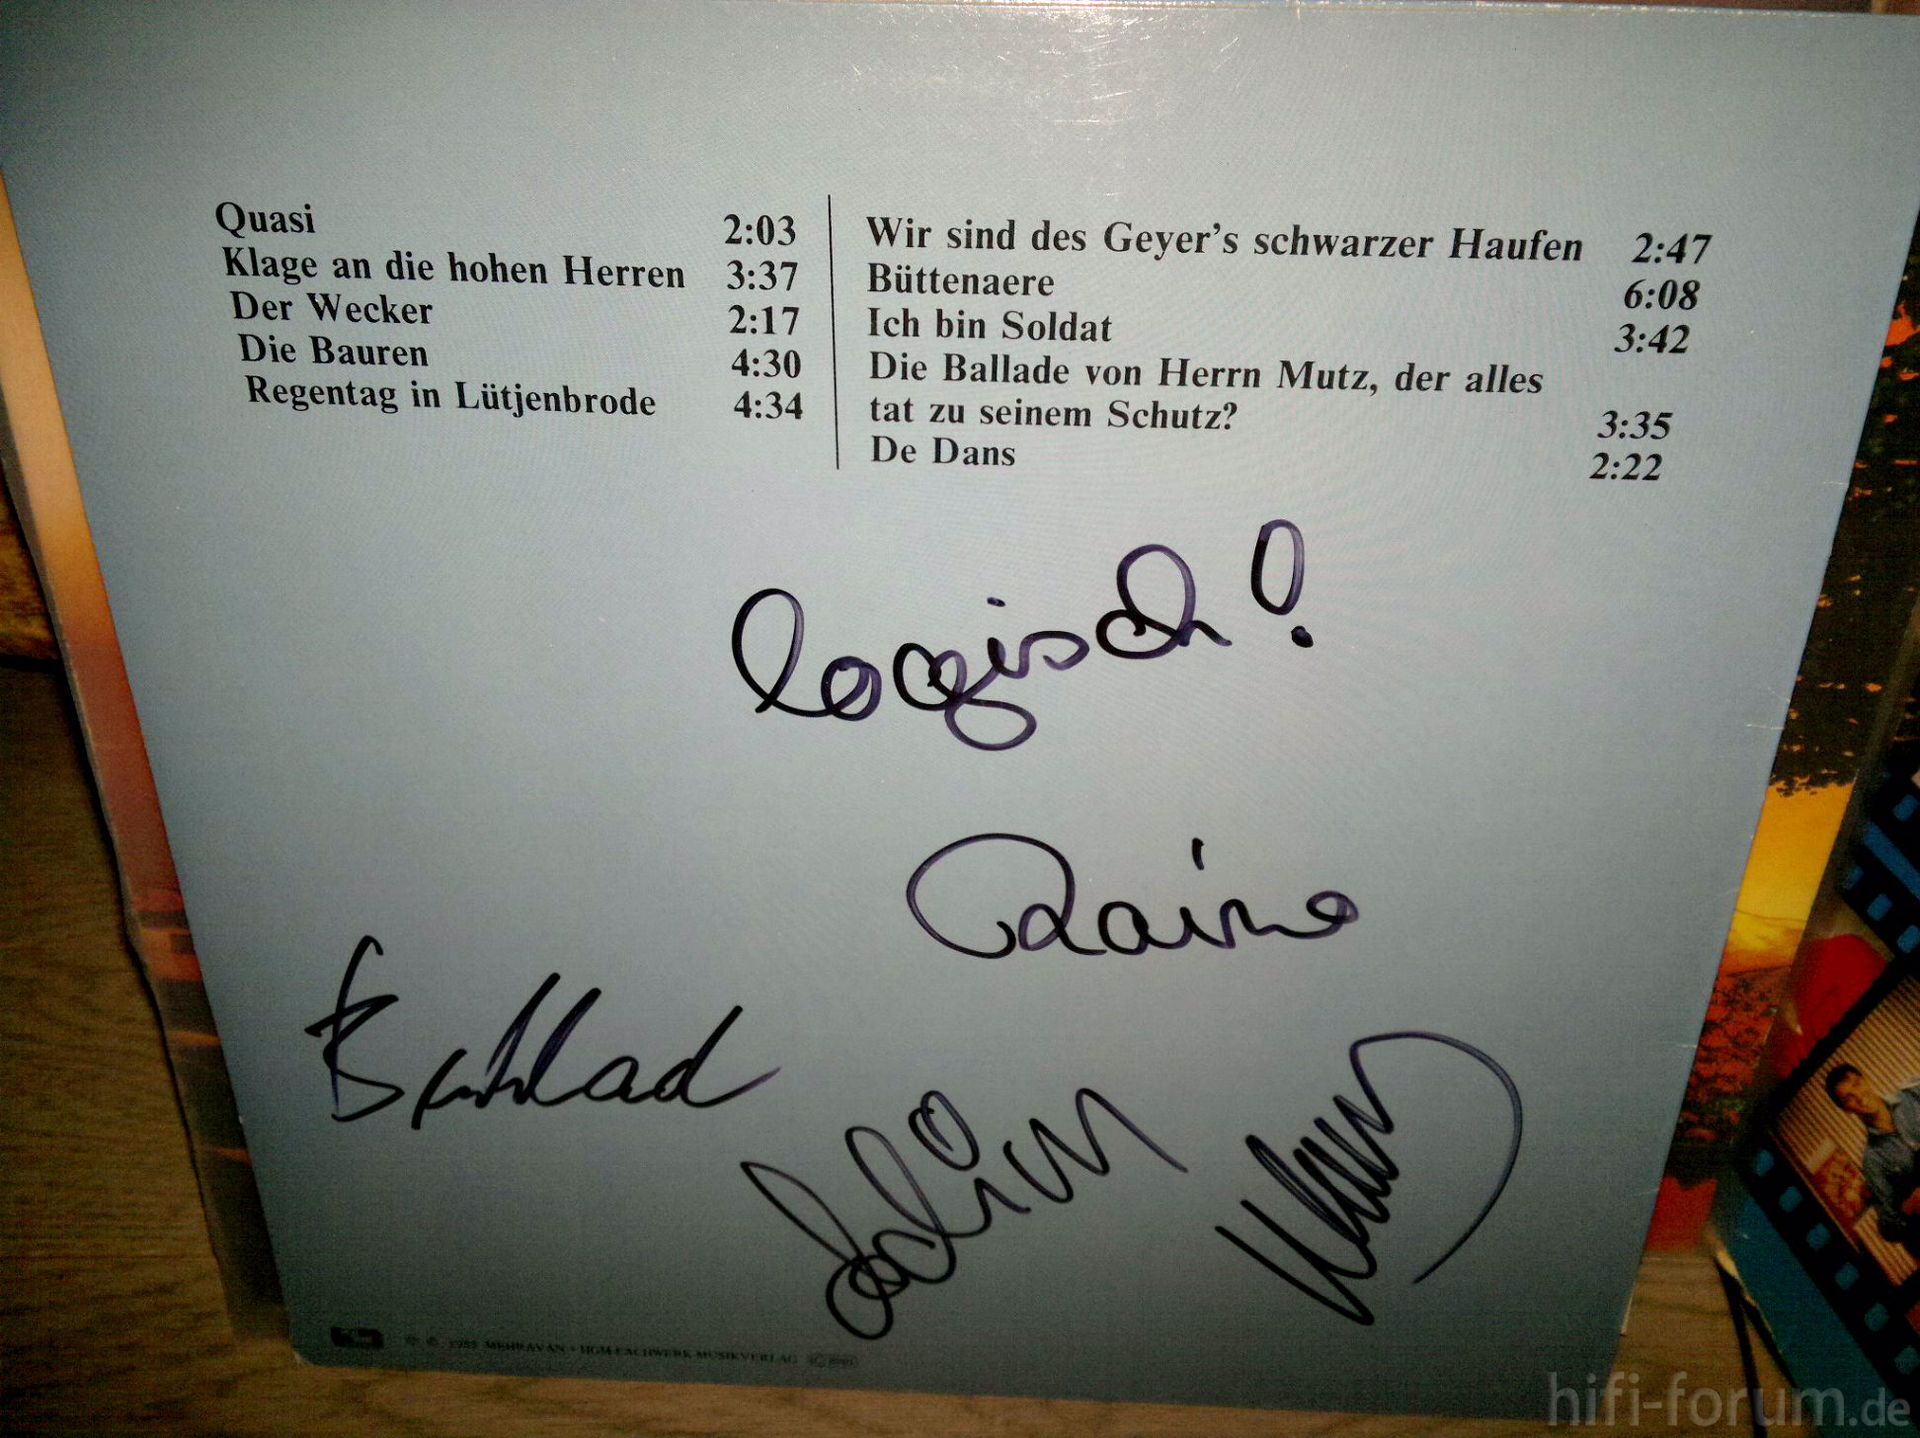 Quasi 2:03
Klage an die hohen Herren 3:37
Der Wecker 2:17
Die Bauren 4:30
Regentag in Lütjenbrode 4:34
Wir sind des Geyer's schwarzer Haufen 2:47
Büttenaere 6:08
Ich bin Soldat 3:42
Die Ballade von Herrn Mutz, der alles
tat zu seinem Schutz? 3:35
De Dans 2:22
logisch!
MUSIKVERLAG
hifi-forum.de